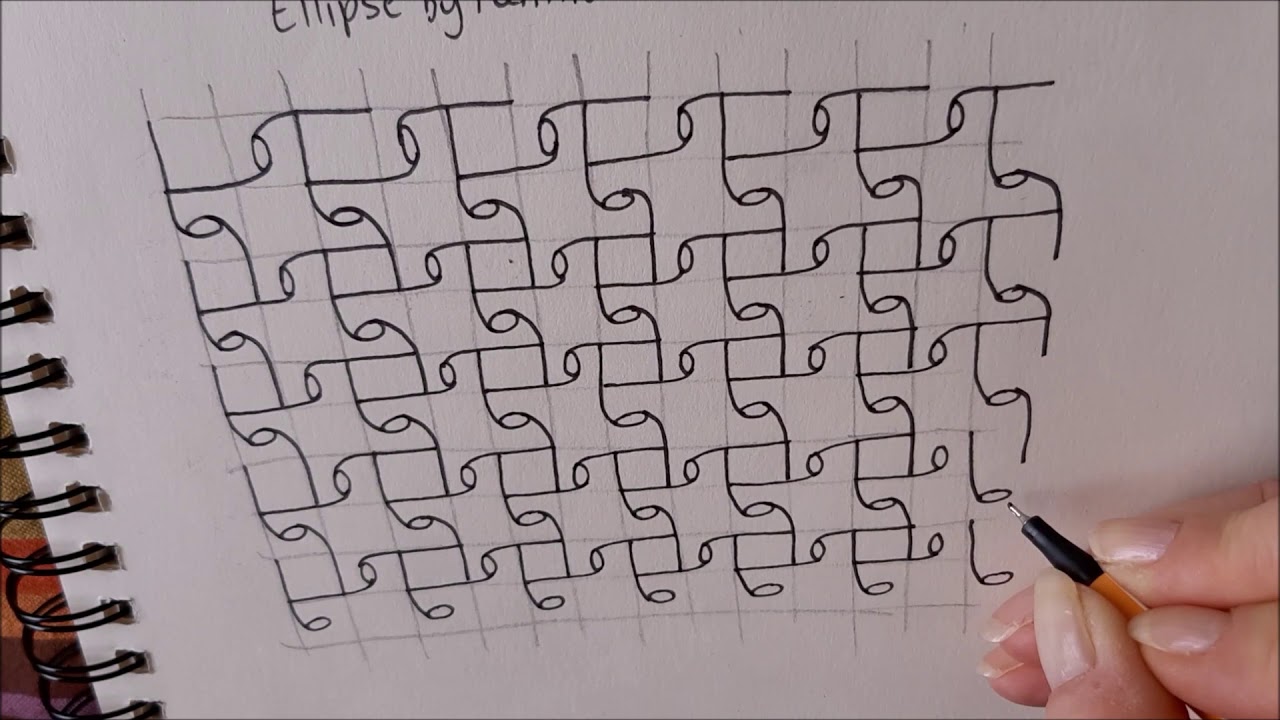 Ellipse by